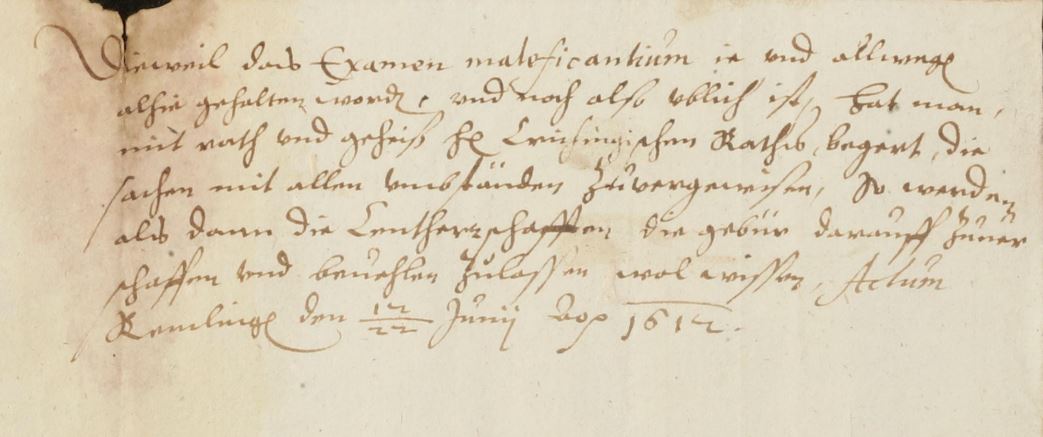 Dieweil das Examen maleficantium ie vnd allweg
alhie gehalten word, vnd noch also vblich ist, hat man,
mit rath vnd geheiß Raths, begert, die
sachen mit allen vmbständen zuvergewisen, So werden
als dann die Centherrschafften die gebür darauff zuuer
schaffen vnd beuehlen zulassen wol wissen, Actum
Remling den 12/22 Junij 1612.